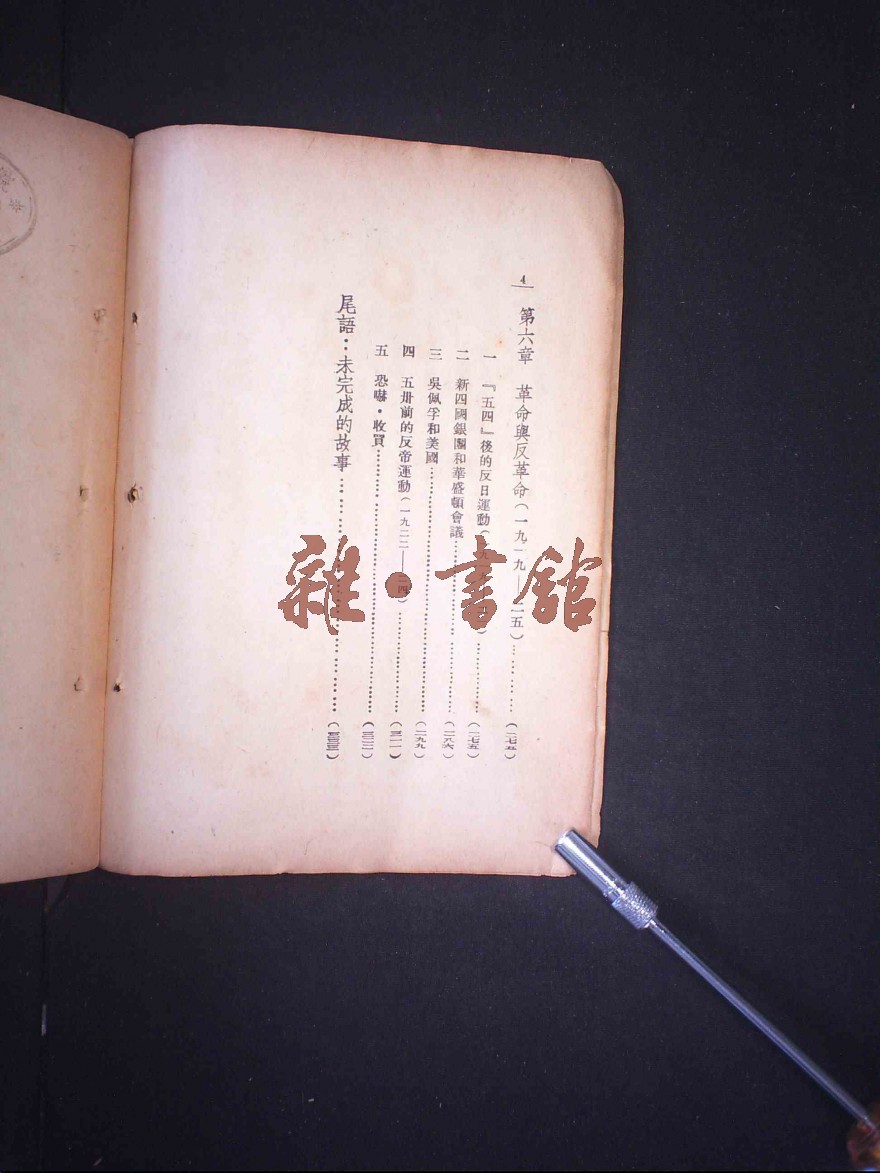 4
第六章 革命與反革命(一九一九——二五)…………(二七五)
一 『五四』後的反日運動(…………(二七五)
二 新四國銀團和華盛頓會議…………(二八六)
三 吳佩孚和美國…………(二九九)
四 五卅前的反帝運動(一九二二——二四)…………(三一一)
五 恐嚇・收買…………
尾語：未完成的故事…………
雜・書館